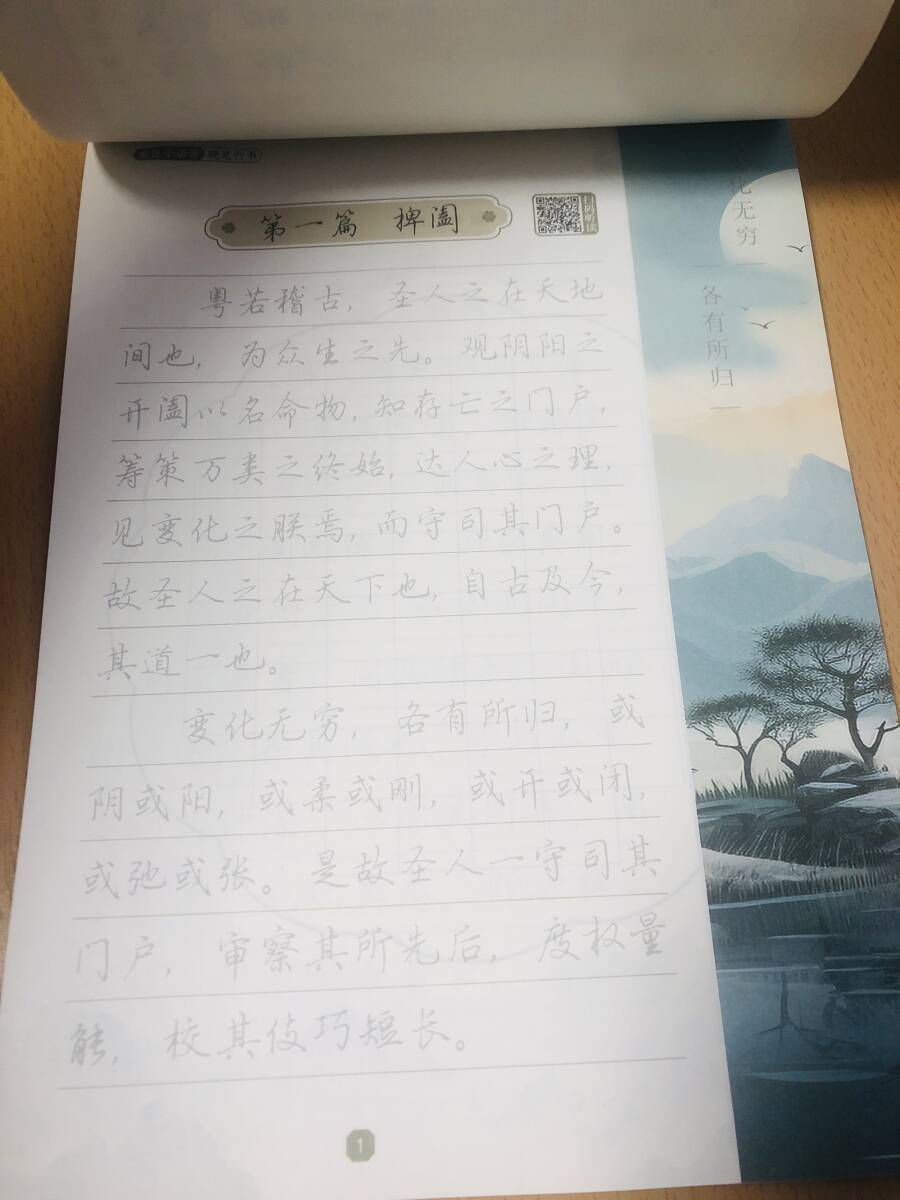 硬笔行书
第一篇 捭阖
粤若稽古，圣人之在天地
间也，为众生之先。观阴阳之
开阖以名命物，知存亡之门户，
筹策万类之终始，达人心之理，
见变化之朕焉，而守司其门户。
故圣人之在天下也，自古及今，
其道一也。
变化无穷，各有所归，或
阴或阳，或柔或刚，或开或闭，
或弛或张。是故圣人一守司其
门户，审察其所先后，度权量
能，校其伎巧短长。
1
化无穷
各有所归